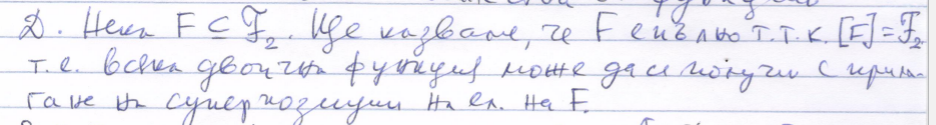 Д. Нека F ⊆ 𝓕₂. Ще казваме, че F е пълно т.т.к. [F] = 𝓕₂
т.е. всяка двоична функция може да се получи с прила-
гане на суперпозиции на ел. на F.